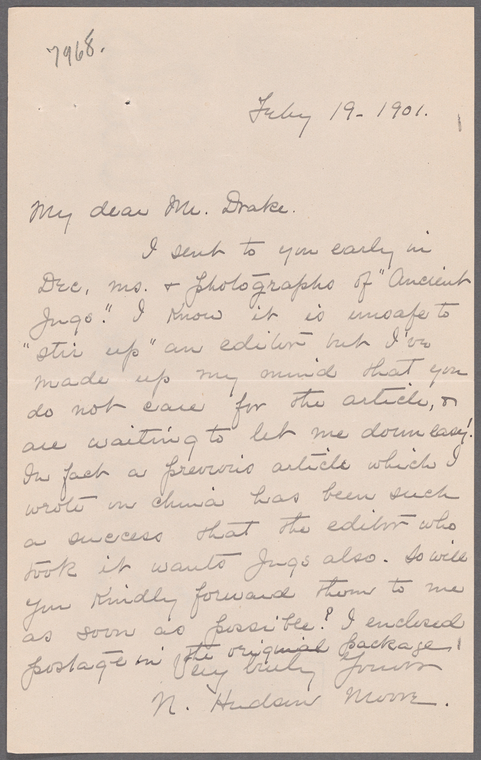 7968.
Feby 19 - 1901.
My dear Mr. Drake.
I sent to you early in
Dec, ms. & photographs of "Ancient
Jugs." I know it is unsafe to
"stir up" an editor but I've
made up my mind that you
do not care for the article, &
are waiting to let me down easy!
In fact a previous article which I
wrote on china has been such
a success that the editor who
took it wants Jugs also. So will
you kindly forward them to me
as soon as possible? I enclosed
postage in the original package!
Very truly yours
N. Hudson Moore.